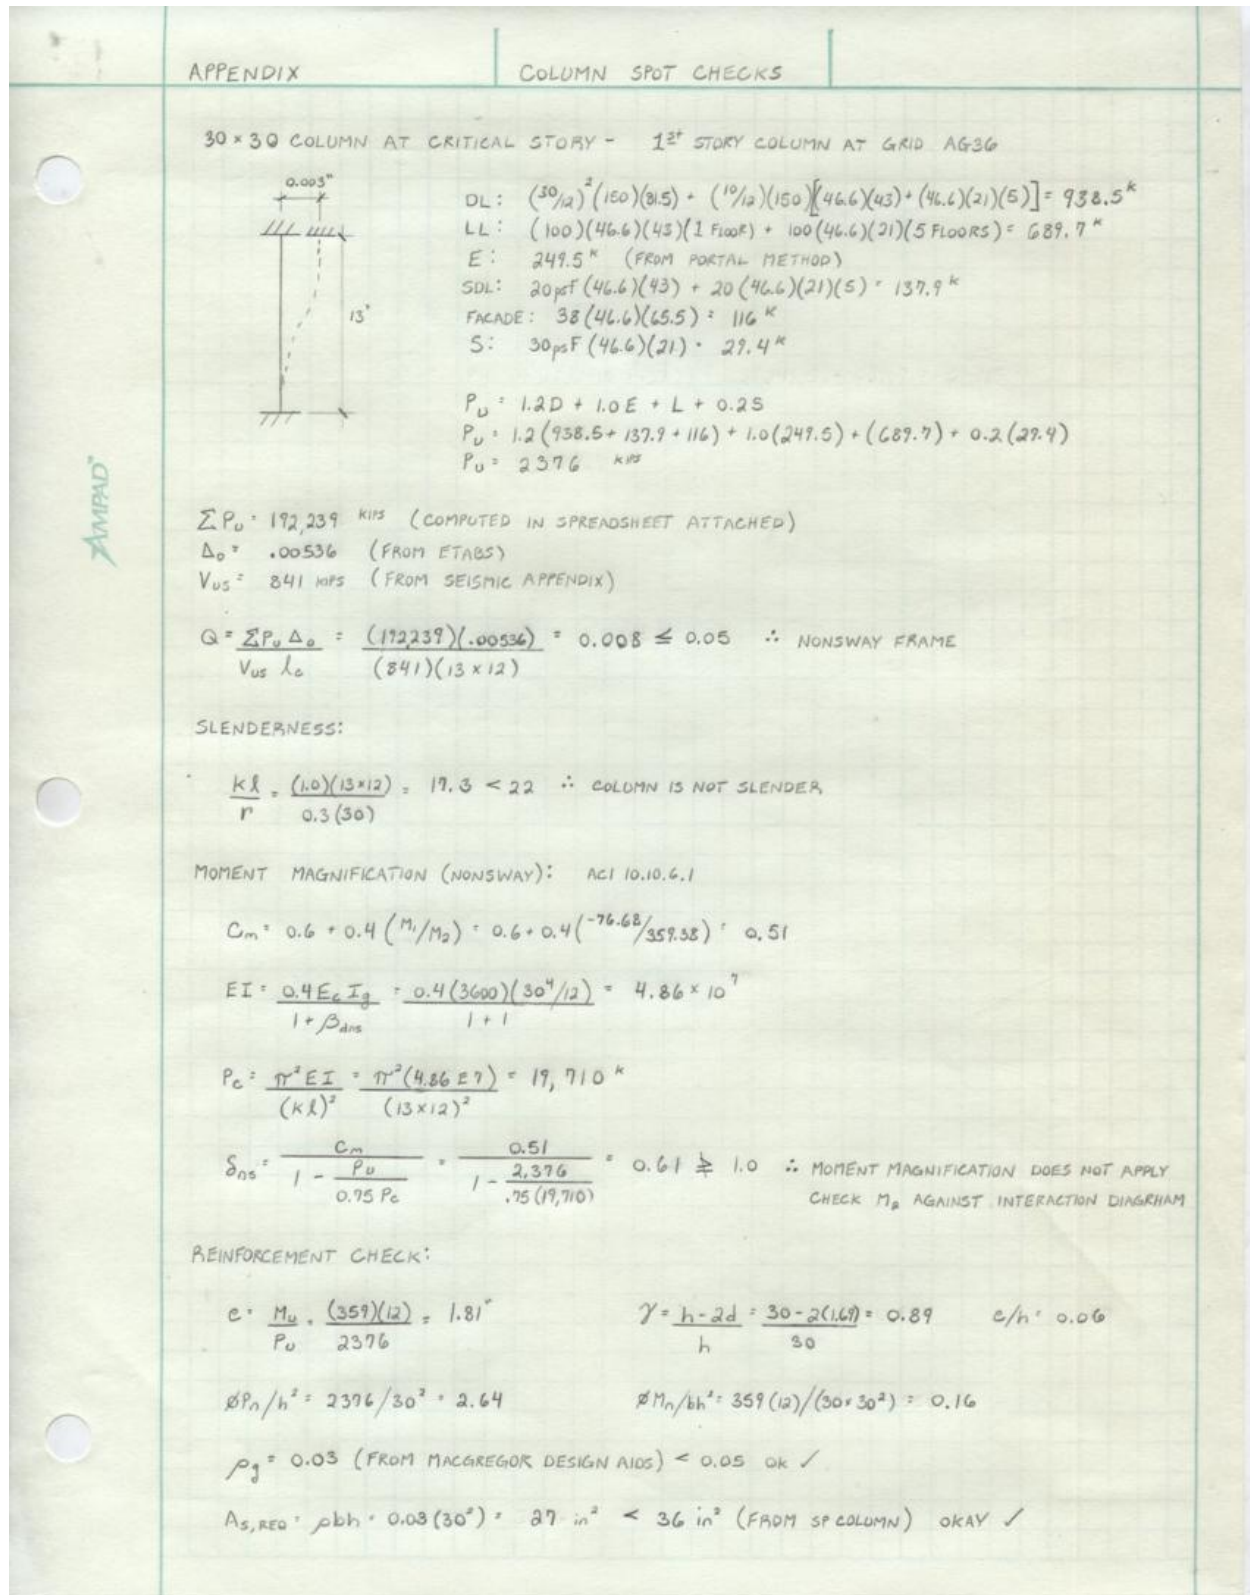 APPENDIX
COLUMN SPOT CHECKS
30 × 30 COLUMN AT CRITICAL STORY - 1st STORY COLUMN AT GRID AG36
0.003"
13'
DL: (30/12)²(150)(81.5) + (10/12)(150)[(46.6)(43) + (46.6)(21)(5)] = 938.5 k
LL: (100)(46.6)(43)(1 FLOOR) + 100(46.6)(21)(5 FLOORS) = 689.7 k
E: 249.5 k (FROM PORTAL METHOD)
SDL: 20psf (46.6)(43) + 20(46.6)(21)(5) = 137.9 k
FACADE: 38(46.6)(65.5) = 116 k
S: 30psF (46.6)(21) = 29.4 k
Pu = 1.2D + 1.0E + L + 0.2S
Pu = 1.2(938.5 + 137.9 + 116) + 1.0(249.5) + (689.7) + 0.2(29.4)
Pu = 2376 KIPS
ΣPu = 192,239 KIPS (COMPUTED IN SPREADSHEET ATTACHED)
Δo = .00536 (FROM ETABS)
Vus = 841 KIPS (FROM SEISMIC APPENDIX)
Q = ΣPu Δo / Vus lc = (192,239)(.00536) / (841)(13 × 12) = 0.008 ≤ 0.05 ∴ NONSWAY FRAME
SLENDERNESS:
kl / r = (1.0)(13×12) / 0.3(30) = 17.3 < 22 ∴ COLUMN IS NOT SLENDER
MOMENT MAGNIFICATION (NONSWAY): ACI 10.10.6.1
Cm = 0.6 + 0.4 (M1/M2) = 0.6 + 0.4(-76.68/359.38) = 0.51
EI = 0.4 Ec Ig / 1 + βdns = 0.4(3600)(30⁴/12) / 1 + 1 = 4.86 × 10⁷
Pc = π²EI / (kl)² = π²(4.86 E7) / (13×12)² = 19,710 k
δns = Cm / 1 - Pu / 0.75 Pc = 0.51 / 1 - 2,376 / .75(19,710) = 0.61 ≱ 1.0 ∴ MOMENT MAGNIFICATION DOES NOT APPLY
CHECK M2 AGAINST INTERACTION DIAGRHAM
REINFORCEMENT CHECK:
e = Mu / Pu = (359)(12) / 2376 = 1.81" γ = h - 2d / h = 30 - 2(1.69) / 30 = 0.89 e/h = 0.06
øPn/h² = 2376/30² = 2.64 øMn/bh² = 359(12)/(30×30²) = 0.16
ρg = 0.03 (FROM MACGREGOR DESIGN AIDS) < 0.05 OK ✓
As,REQ = ρbh = 0.03(30²) = 27 in² < 36 in² (FROM SP COLUMN) OKAY ✓
AMPAD™